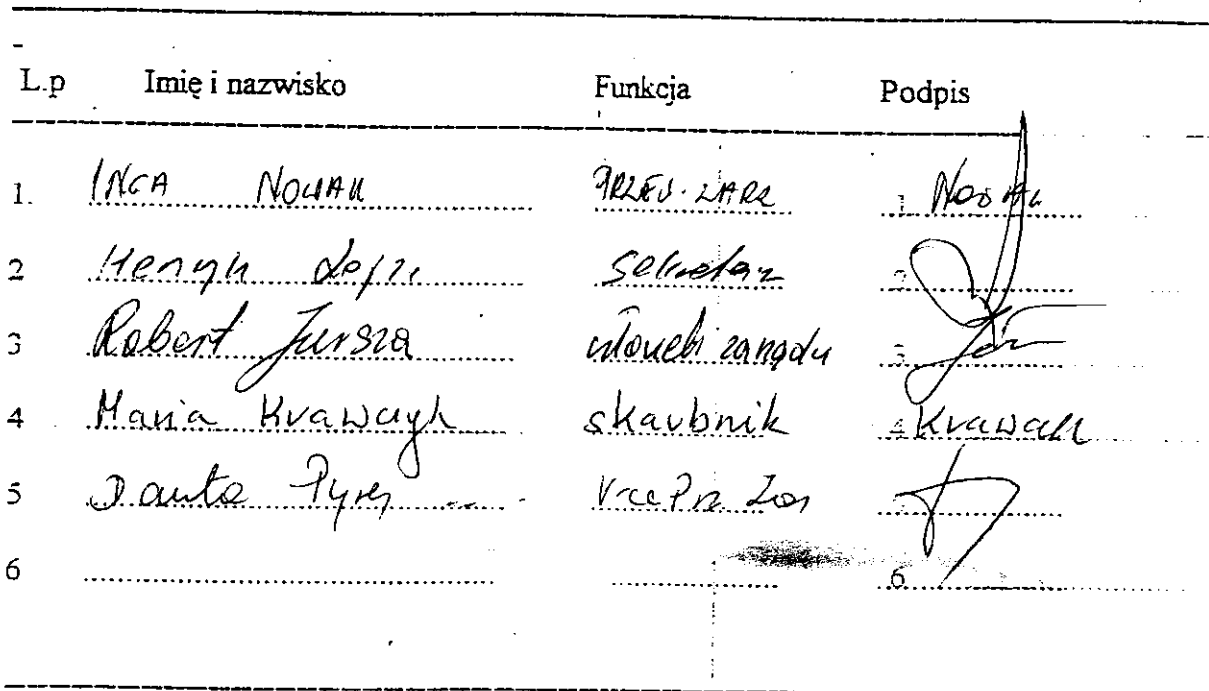 L.p Imię i nazwisko Funkcja Podpis
1. INGA NOWAK PRZEW. ZARZ 1 Nowak
2 Henryk sekretarz 2
3 Robert Jursza członek zarządu 3
4 Maria Krawczyk skarbnik 4 Krawczyk
5 Danuta Pyrej 5
6 6